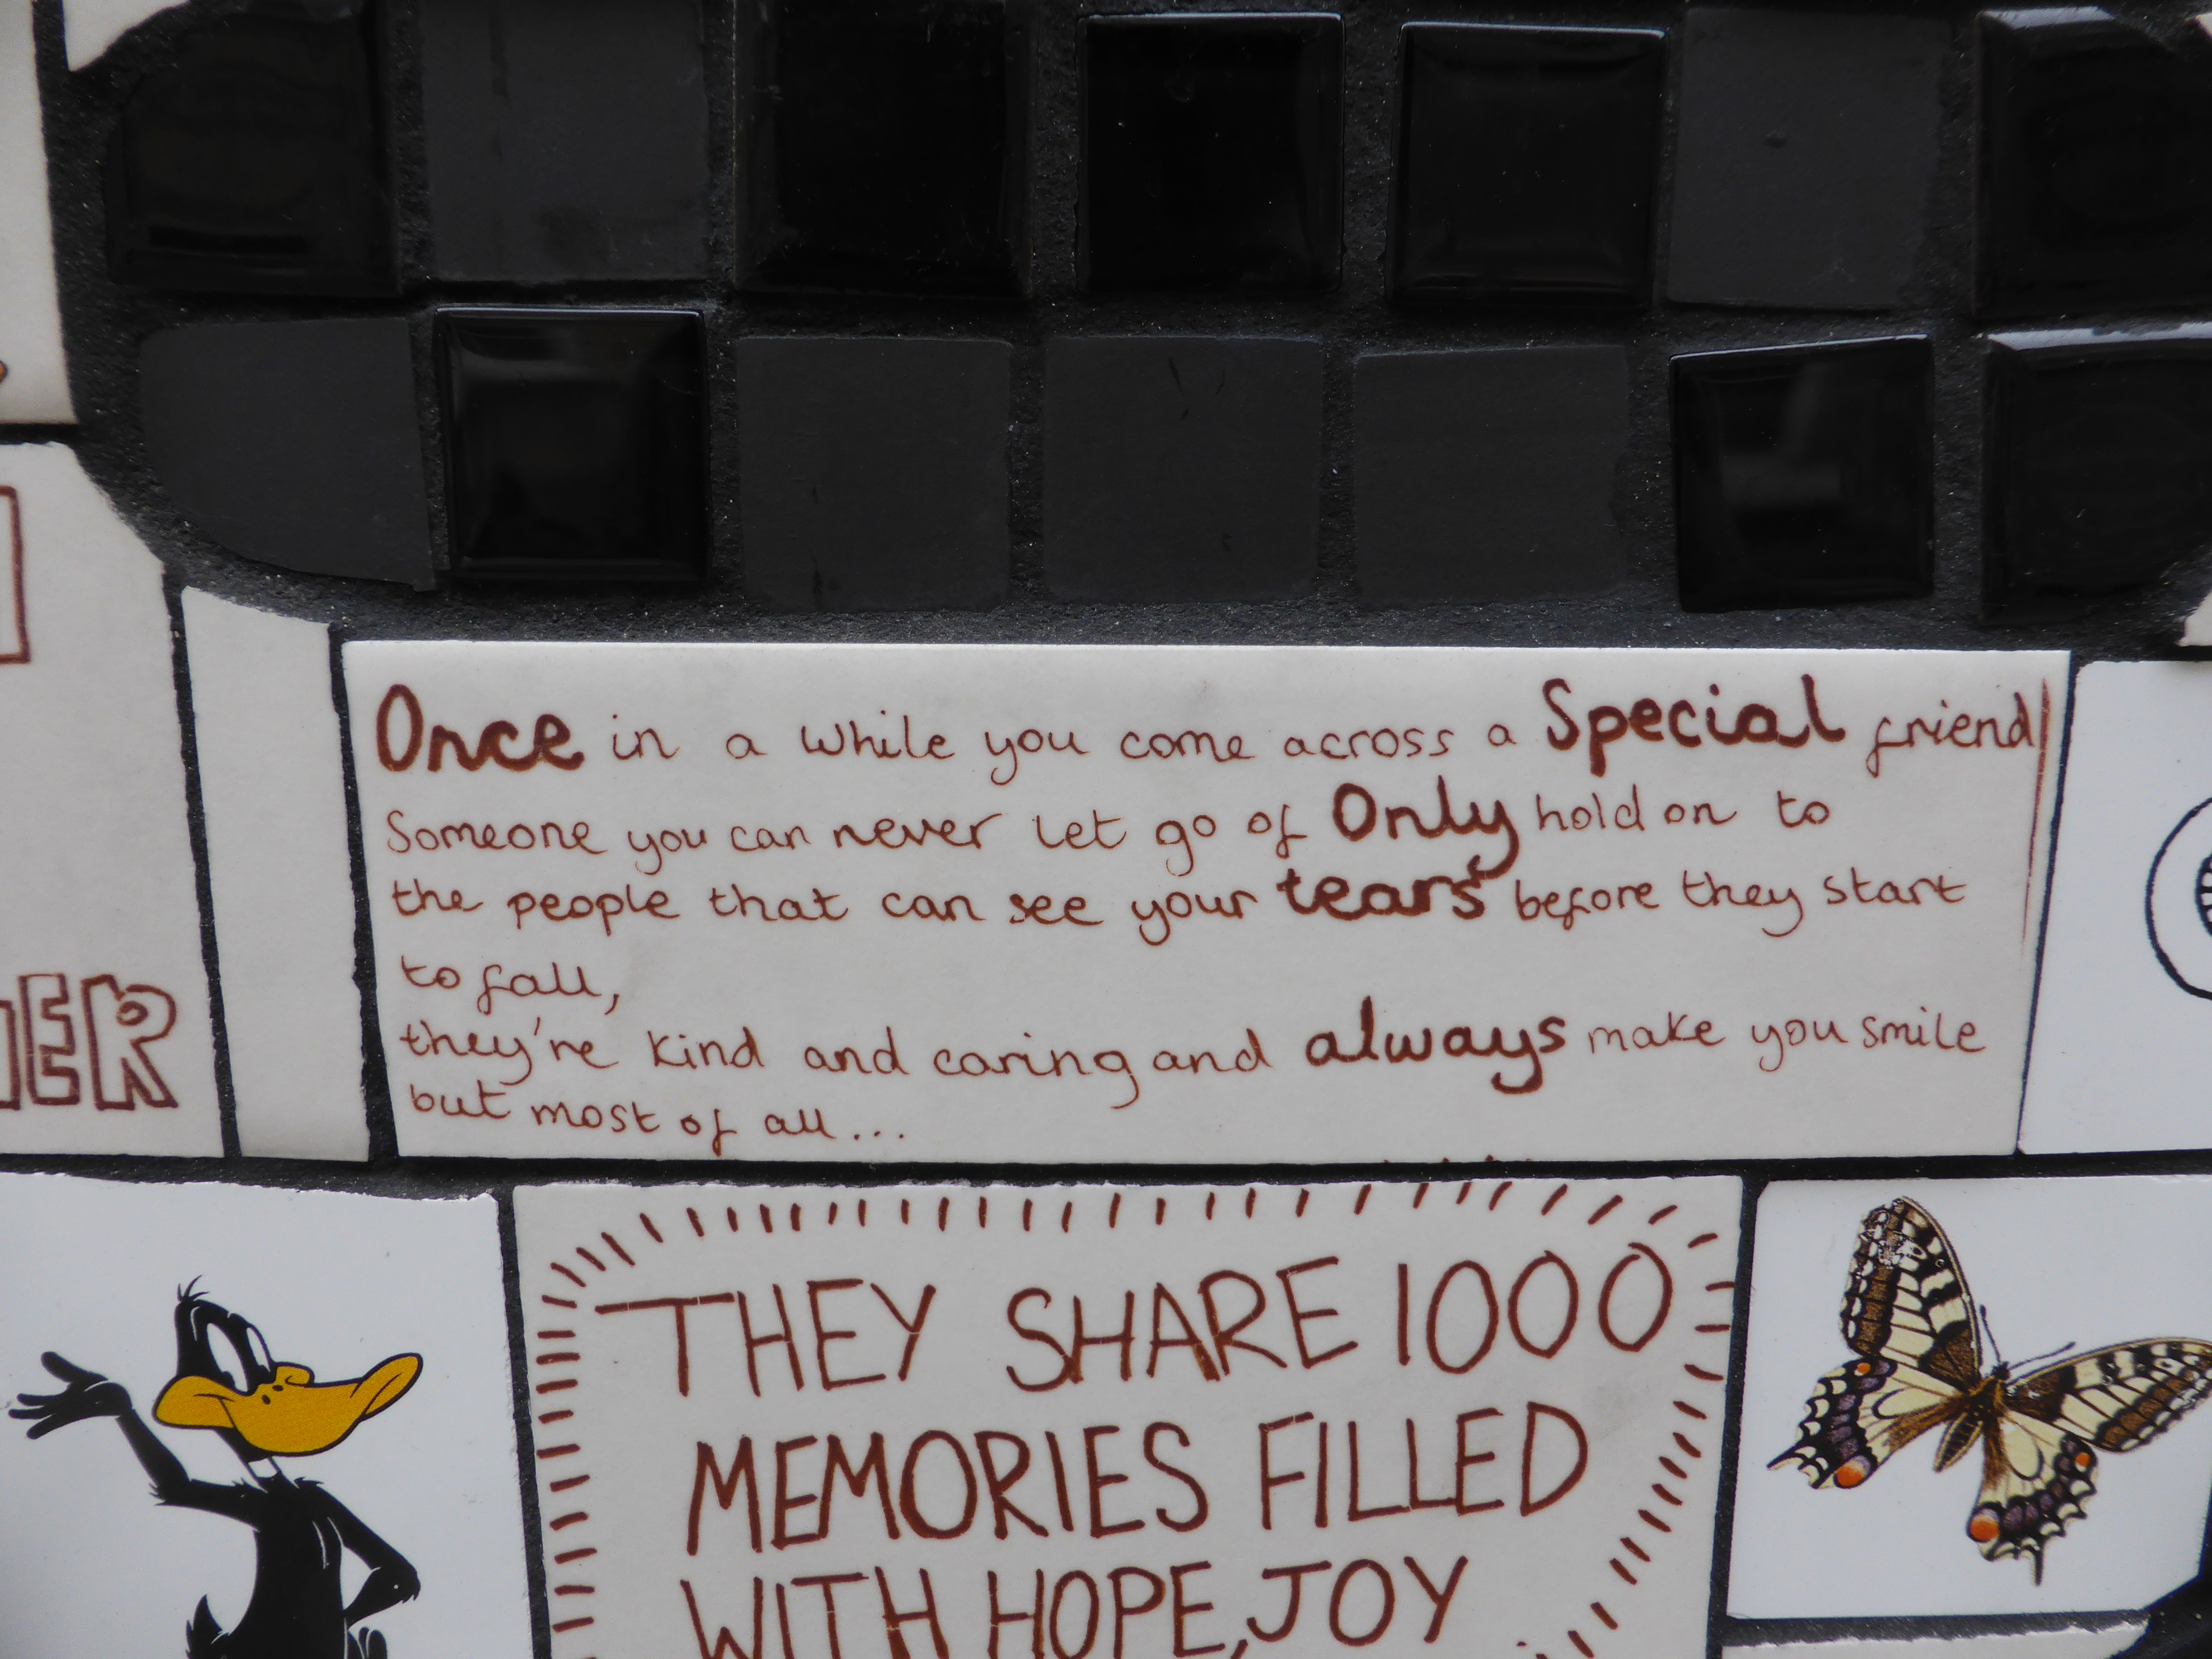 Once in a while you come across a Special friend
Someone you can never let go of Only hold on to
the people that can see your tears before they start
to fall,
they're kind and caring and always make you smile
but most of all...
THEY SHARE 1000
MEMORIES FILLED
WITH HOPE, JOY